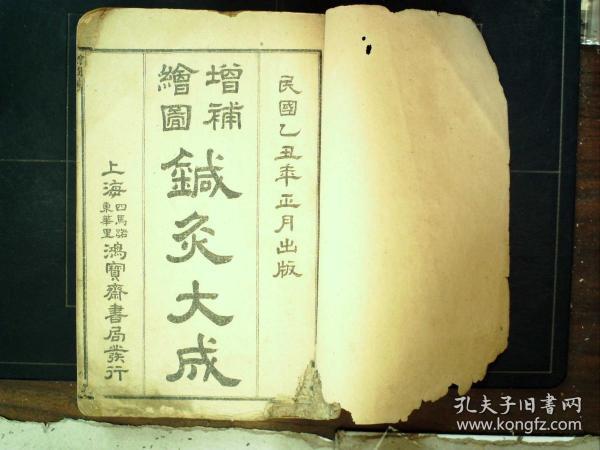 民國乙丑年正月出版
增補
繪圖
鍼灸大成
上海四馬路東華里鴻寶齋書局發行
孔夫子旧书网
www.kongfz.com